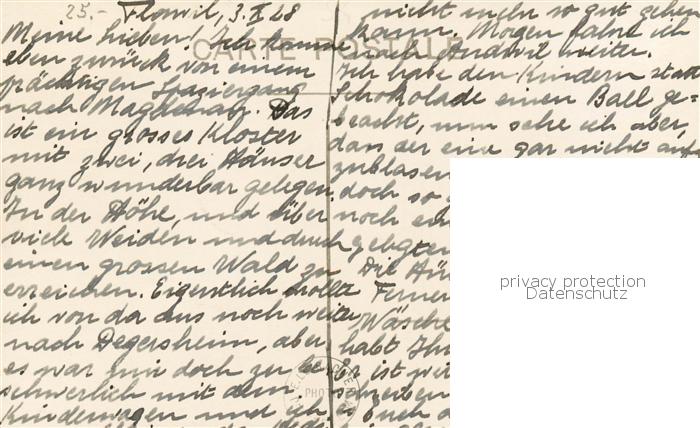 25.- Flawil, 3. X 28
Meine Lieben! Ich komme
CARTE POSTALE
eben zurück von einem
prächtigen Spaziergang
nach Magdenau. Das
ist ein grosses Kloster
mit zwei, drei Häuser
ganz wunderbar gelegen.
In der Höhe, und über
viele Weiden und durch
einen grossen Wald zu
erreichen. Eigentlich wollte
ich von da aus noch weiter
nach Degersheim, aber
es war mir doch zu be-
schwerlich mit dem
Kinderwagen und ich
nicht mehr so gut gehen
kann. Morgen fahre ich
nach Andwil weiter.
Ich habe den Kindern statt
Schokolade einen Ball ge-
bracht, nun sehe ich aber,
dass der eine gar nicht auf-
zublasen
doch so
noch ein
gelegten
Die
Ferner
Wäsche
habt Ihr
Er ist
schreiben
Euch
PHOT
privacy protection
Datenschutz